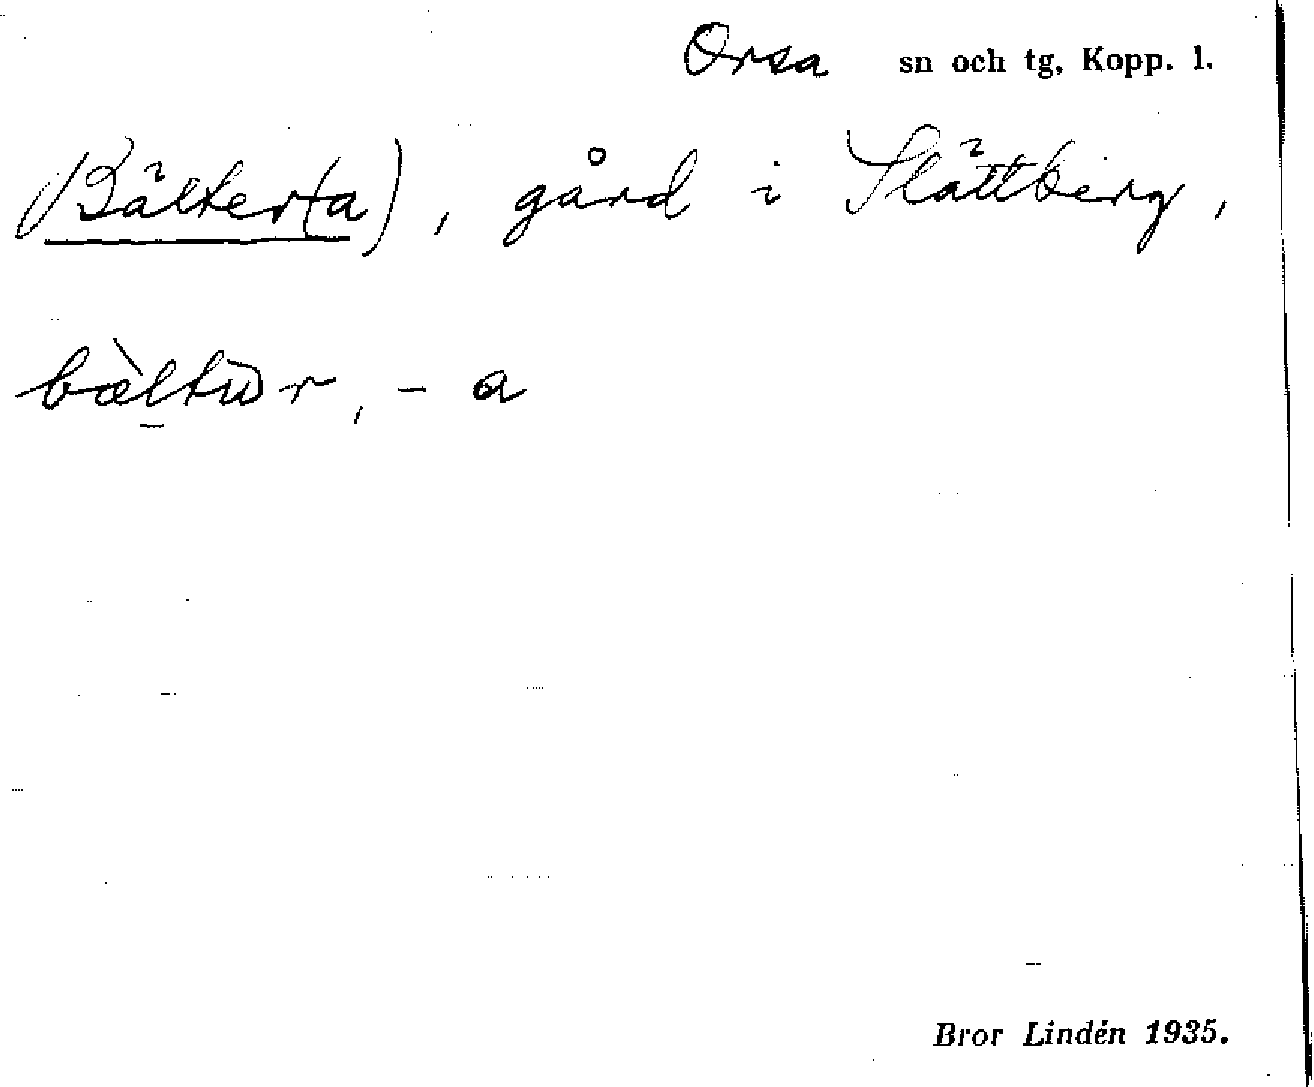 Orsa sn och tg, Kopp. l.
(Bälter(a), gård i Slättberg,
bæ̀ltɯr, - a
Bror Lindén 1935.